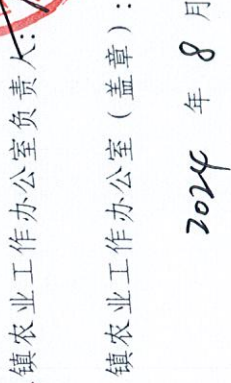 镇农业工作办公室负责人:
镇农业工作办公室(盖章):
2024 年 8 月